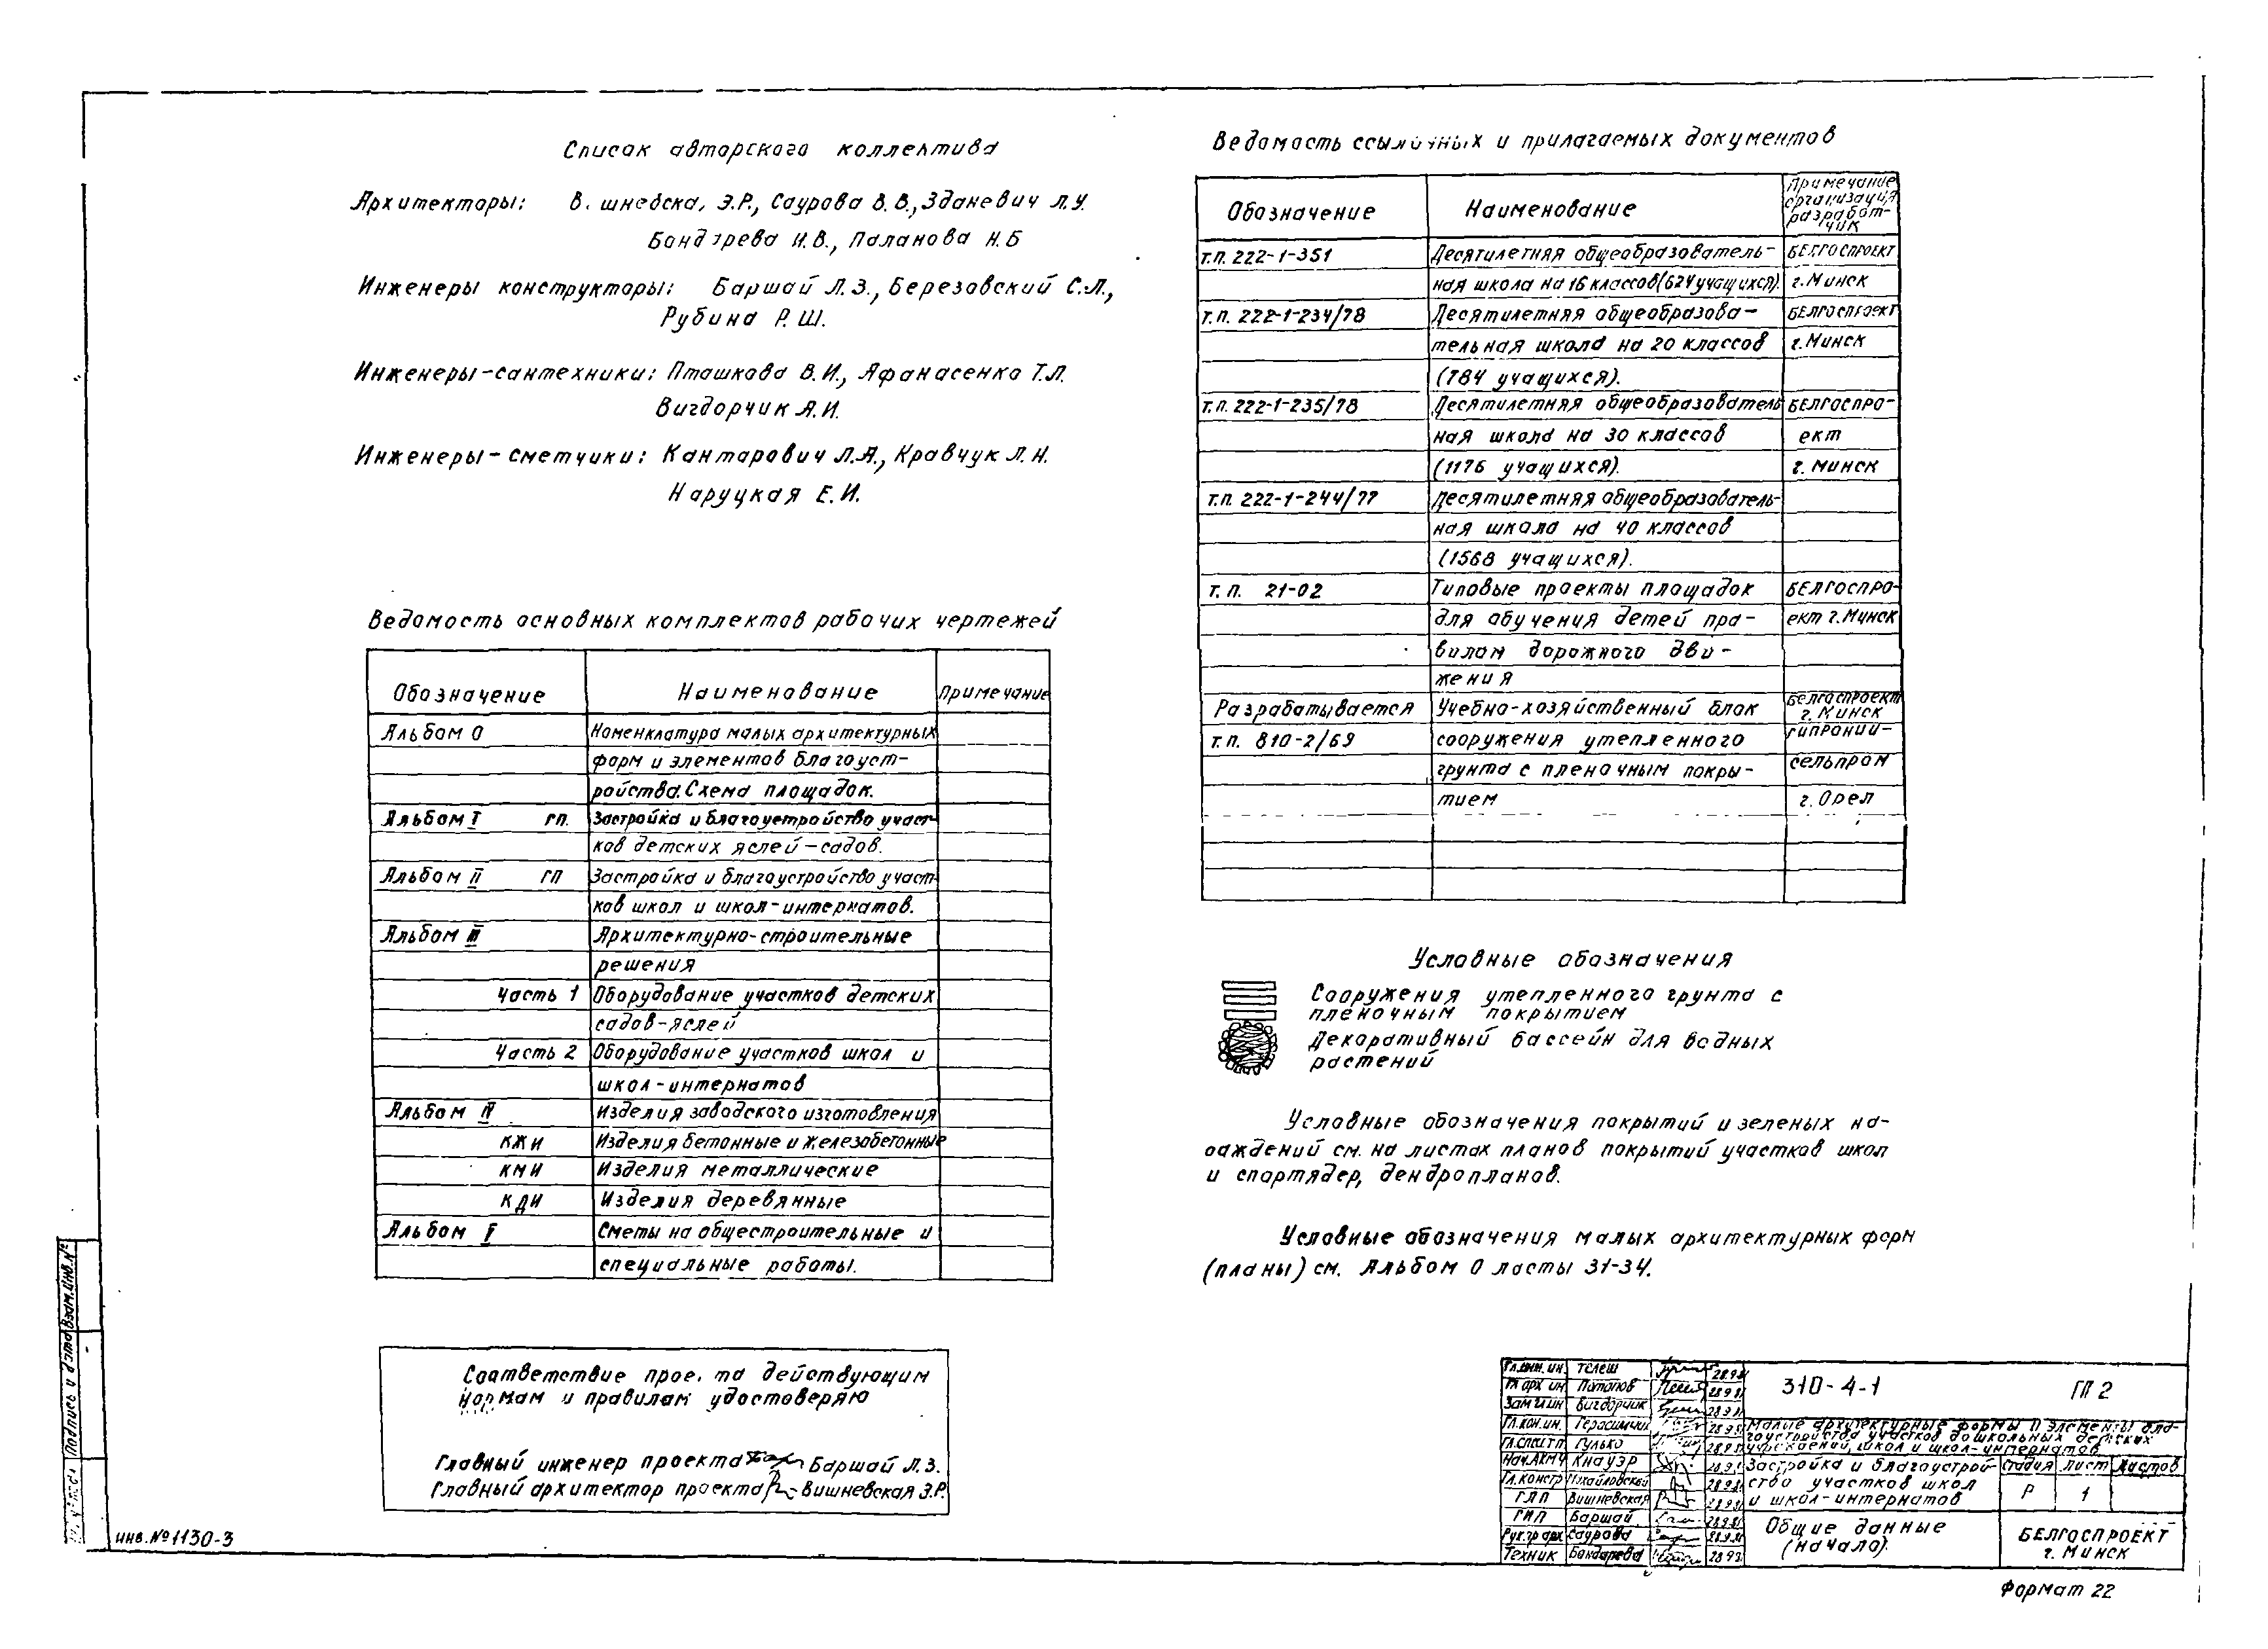 Список авторского коллектива
Архитекторы: Э.Р., Саурова В.В., Зданевич Л.У.
Н.В., Паланова Н.Б
Инженеры конструкторы: Баршай Л.З., Березовский С.Л.,
Рубина Р.Ш.
Инженеры-сантехники: Пташкова В.И., Афанасенко Т.Л.
Вигдорчик А.И.
Инженеры-сметчики: Кантарович Л.А., Кравчук Л.Н.
Наруцкая Е.И.
Ведомость основных комплектов рабочих чертежей
Обозначение Наименование Примечание
Альбом 0 Номенклатура малых архитектурных
форм и элементов благоуст-
ройства. Схема площадок.
Альбом I ГП. Застройка и благоустройство участ-
ков детских яслей-садов.
Альбом II ГП Застройка и благоустройство участ-
ков школ и школ-интернатов.
Альбом III Архитектурно-строительные
решения
Часть 1 Оборудование участков детских
садов-яслей
Часть 2 Оборудование участков школ и
школ-интернатов
Альбом IV Изделия заводского изготовления
КЖИ Изделия бетонные и железобетонные
КМИ Изделия металлические
КДИ Изделия деревянные
Альбом V Сметы на общестроительные и
специальные работы.
Соответствие действующим
нормам и правилам удостоверяю
Главный инженер проекта Баршай Л.З.
Главный архитектор проекта Вишневская Э.Р.
Ведомость ссылочных и прилагаемых документов
Обозначение Наименование Примечание
организация
разработ-
чик
т.п. 222-1-351 Десятилетняя общеобразователь- БЕЛГОСПРОЕКТ
ная школа на 16 классов (624 учащихся). г. Минск
т.п. 222-1-234/78 Десятилетняя общеобразова- БЕЛГОСПРОЕКТ
тельная школа на 20 классов г. Минск
(784 учащихся).
т.п. 222-1-235/78 Десятилетняя общеобразователь БЕЛГОСПРО-
ная школа на 30 классов ект
(1176 учащихся). г. Минск
т.п. 222-1-244/77 Десятилетняя общеобразователь-
ная школа на 40 классов
(1568 учащихся).
т.п. 21-02 Типовые проекты площадок БЕЛГОСПРО-
для обучения детей пра- ект г. Минск
вилам дорожного дви-
жения
Разрабатывается Учебно-хозяйственный блок Белгоспроект
г. Минск
т.п. 810-2/69 сооружения утепленного Гипронии-
грунта с пленочным покры- сельпром
тием г. Орел
Условные обозначения
Сооружения утепленного грунта с
пленочным покрытием
Декоративный бассейн для водных
растений
Условные обозначения покрытий и зеленых на-
саждений см. на листах планов покрытий участков школ
и спортядер, дендропланов.
Условные обозначения малых архитектурных форм
(планы) см. Альбом 0 листы 31-34.
Гл.инж.ин. Телеш 28.9.81
Гл арх ин. Потапов 28.9.81
Вигдорчик
Гл.кон.ин.
Гл.спец.тп Гулько
Нач.АКМЧ Кнауэр
Гл.констр
ГАП Вишневская
ГИП Баршай 28.9.81
Рук.гр арх Саурова
Техник Бондарева
310-4-1 ГП 2
Малые архитектурные формы и элементы бла-
гоустройства участков дошкольных детских
учреждений, школ и школ-интернатов
Застройка и благоустрой
ство участков школ
и школ-интернатов
Стадия Лист Листов
Р 1
Общие данные
(начало).
БЕЛГОСПРОЕКТ
г. Минск
Формат 22
Взам.инв.№
Подпись и дата
инв.№1130-3